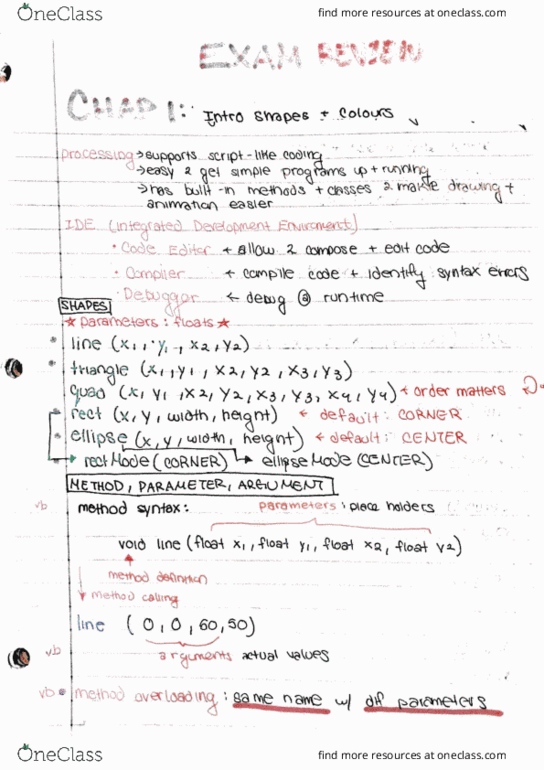 OneClass
find more resources at oneclass.com
EXAM REVIEW
CHAP 1: Intro shapes + colours
processing → supports script-like coding
→ easy 2 get simple programs up + running
→ has built-in methods + classes 2 make drawing + animation easier
IDE (Integrated Development Enviroment)
• Code Editor ← allow 2 compose + edit code
• Compiler ← compile code + identify syntax errors
• Debuggor ← debug @ runtime
SHAPES
★ parameters: floats ★
• line (x1, y1, x2, y2)
• triangle (x1, y1, x2, y2, x3, y3)
quad (x1 y1, x2, y2, x3, y3, x4, y4) ← order matters
• rect (x, y, width, height) ← default: CORNER
• ellipse (x, y, width, height) ← default: CENTER
→ rectMode (CORNER) → ellipseMode (CENTER)
METHOD, PARAMETER, ARGUMENT
vb method syntax: parameters: place holders
void line (float x1, float y1, float x2, float y2)
method definition
method calling
line (0, 0, 60, 50)
vb arguments actual values
vb • method overloading: same name w/ dif parameters
OneClass
find more resources at oneclass.com